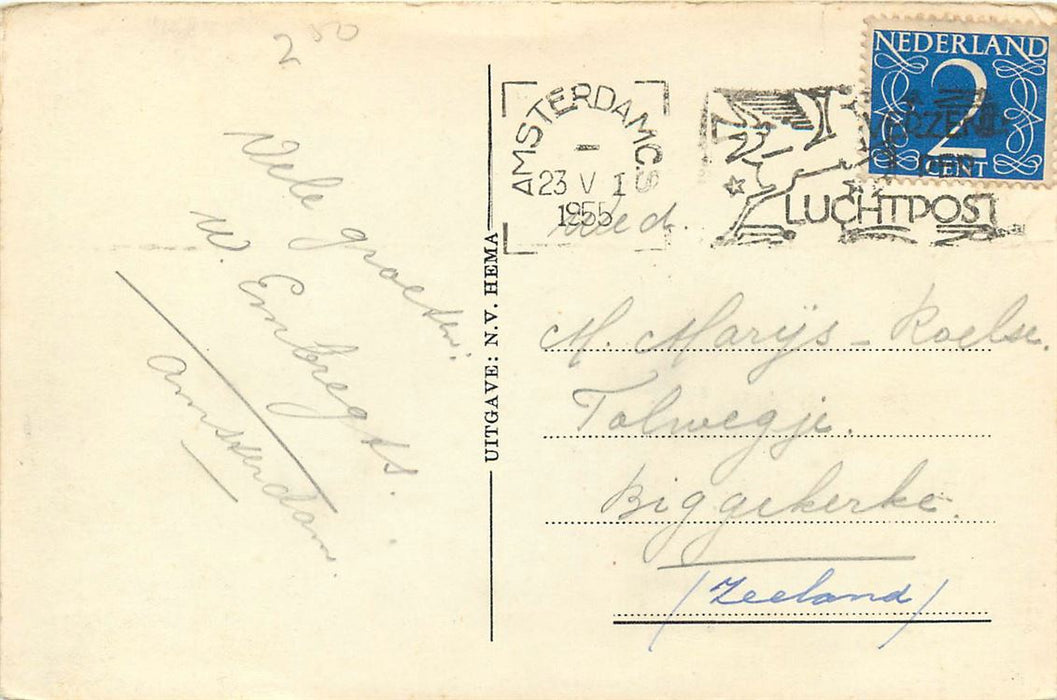 2 50
Vele groeten.
W. Enbregts.
Amsterdam.
UITGAVE: N.V. HEMA
AMSTERDAM C.S
23 V 1
1955
NEDERLAND
2
CENT
PER
LUCHTPOST
M. Marijs - Roelse.
Tolwegje.
Biggekerke.
(Zeeland)